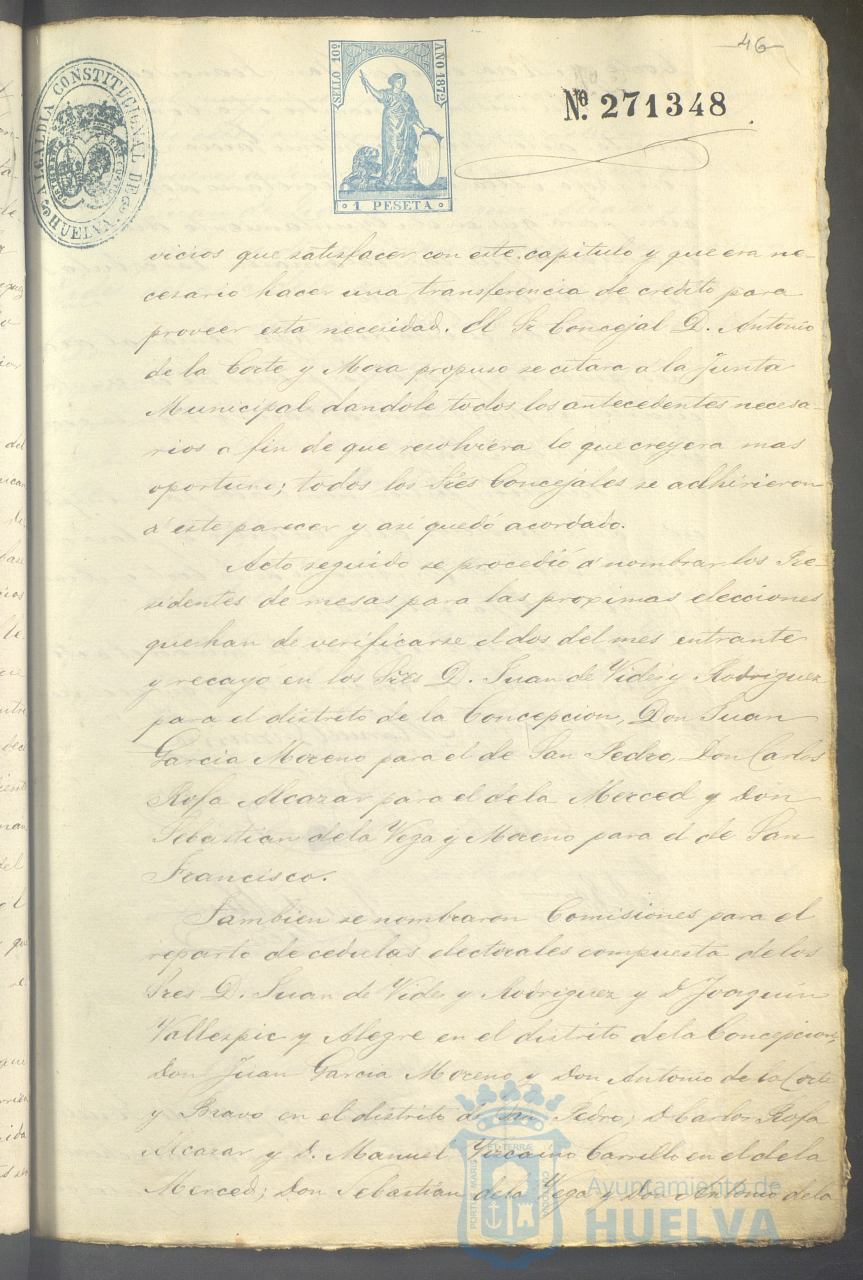 46
ALCALDIA CONSTITUCIONAL DE HUELVA.
SELLO 10º AÑO 1872
1 PESETA
Nº. 271348
vicios que satisfacer con este capitulo y que era ne-
cesario hacer una transferencia de credito para
proveer esta necesidad. El Sr Concejal D. Antonio
de la Corte y Mora propuso se citara a la Junta
Municipal dandole todos los antecedentes necesa-
rios a fin de que resolviera lo que creyera mas
oportuno; todos los Sres Concejales se adhirieron
á este parecer y así quedó acordado.
Acto seguido se procedió á nombrar los Pre-
sidentes de mesas para las proximas elecciones
que han de verificarse el dos del mes entrante
y recayó en los Sres D. Juan de Vides y Rodriguez
para el distrito de la Concepcion, Don Juan
Garcia Moreno para el de San Pedro, Don Carlos
Rofa Alcazar para el de la Merced y Don
Sebastian de la Vega y Moreno para el de San
Francisco.
Tambien se nombraron Comisiones para el
reparto de cedulas electorales compuesta de los
Sres D. Juan de Vides y Rodriguez y D Joaquin
Vallespic y Alegre en el distrito de la Concepcion,
Don Juan Garcia Moreno y Don Antonio de la Corte
y Bravo en el distrito de San Pedro; D Carlos Rofa
Alcazar y D. Manuel Vizcaino Carrillo en el de la
Merced; Don Sebastian de la Vega y Don Antonio de la
PORTUS MARIS ET TERRÆ CUSTODIA
Ayuntamiento de
HUELVA